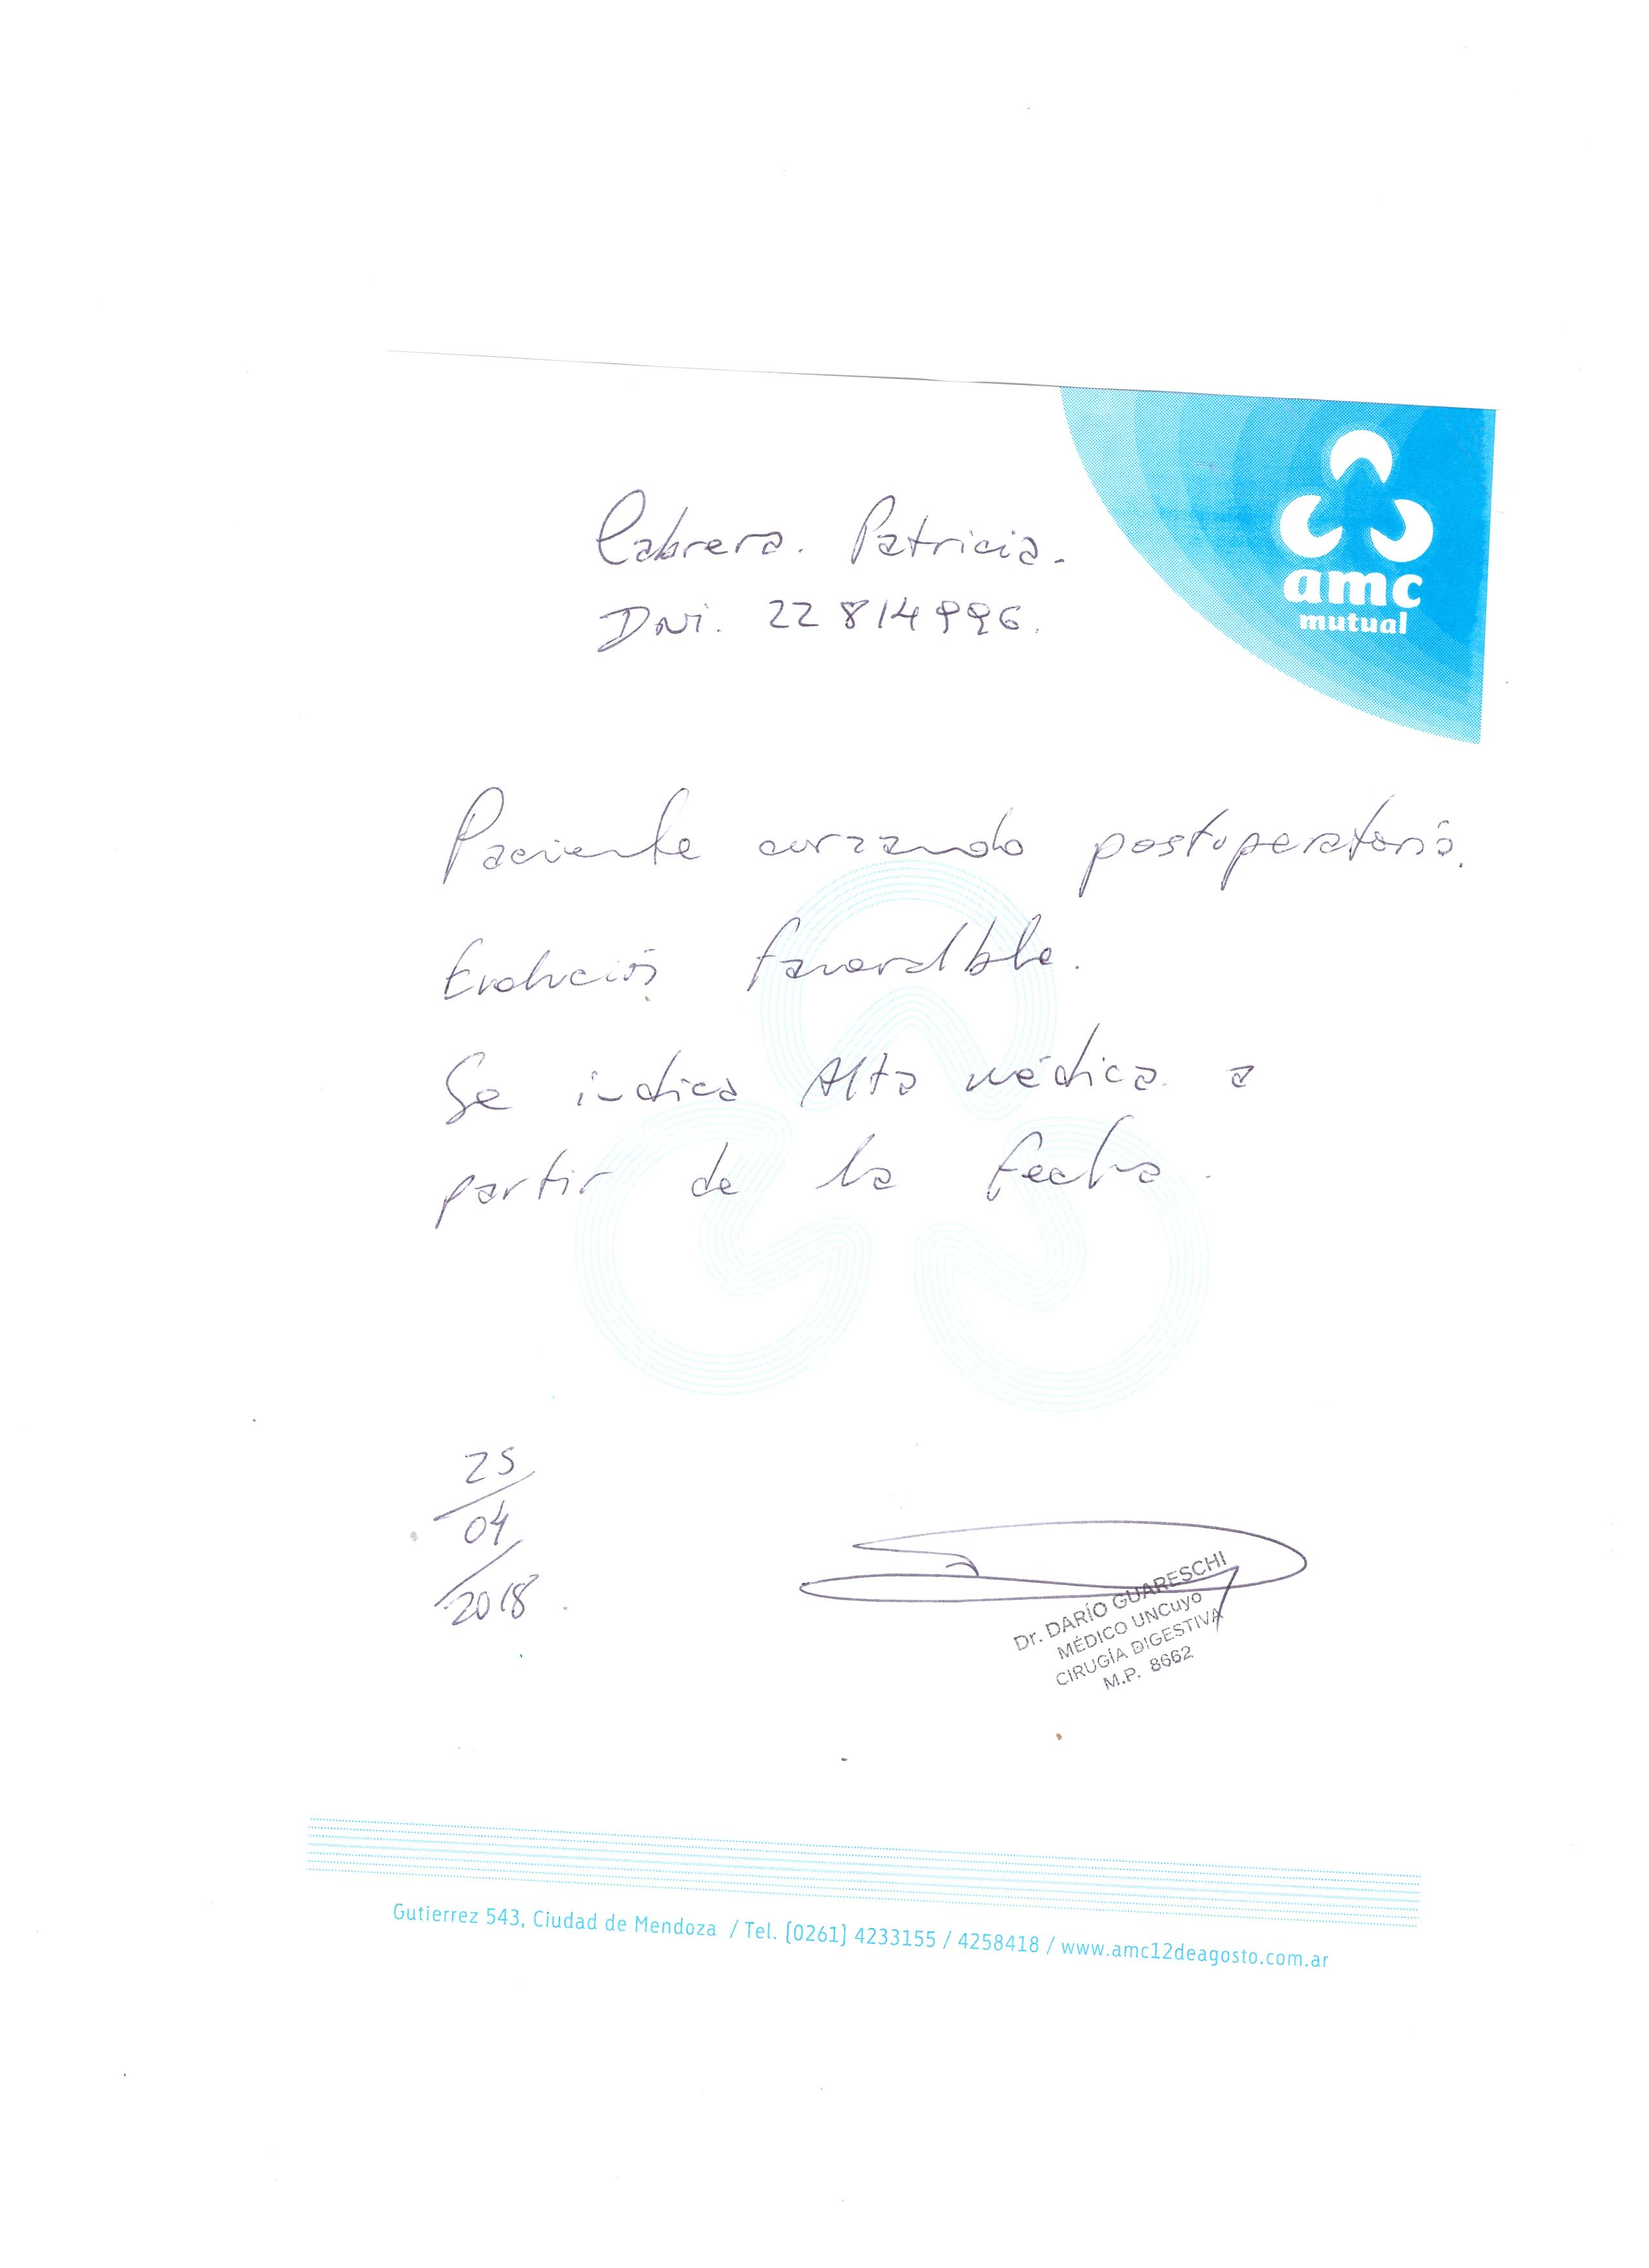 amc
mutual
Cabrera. Patricia.
DNi. 22 814996.
Paciente cursando postoperatorio.
Evolución favorable.
Se indica Alta médica a
partir de la fecha.
25
04
2018.
Dr. DARÍO GUARESCHI
MÉDICO UNCuyo
CIRUGÍA DIGESTIVA
M.P. 8662
Gutierrez 543, Ciudad de Mendoza / Tel. (0261) 4233155 / 4258418 / www.amc12deagosto.com.ar